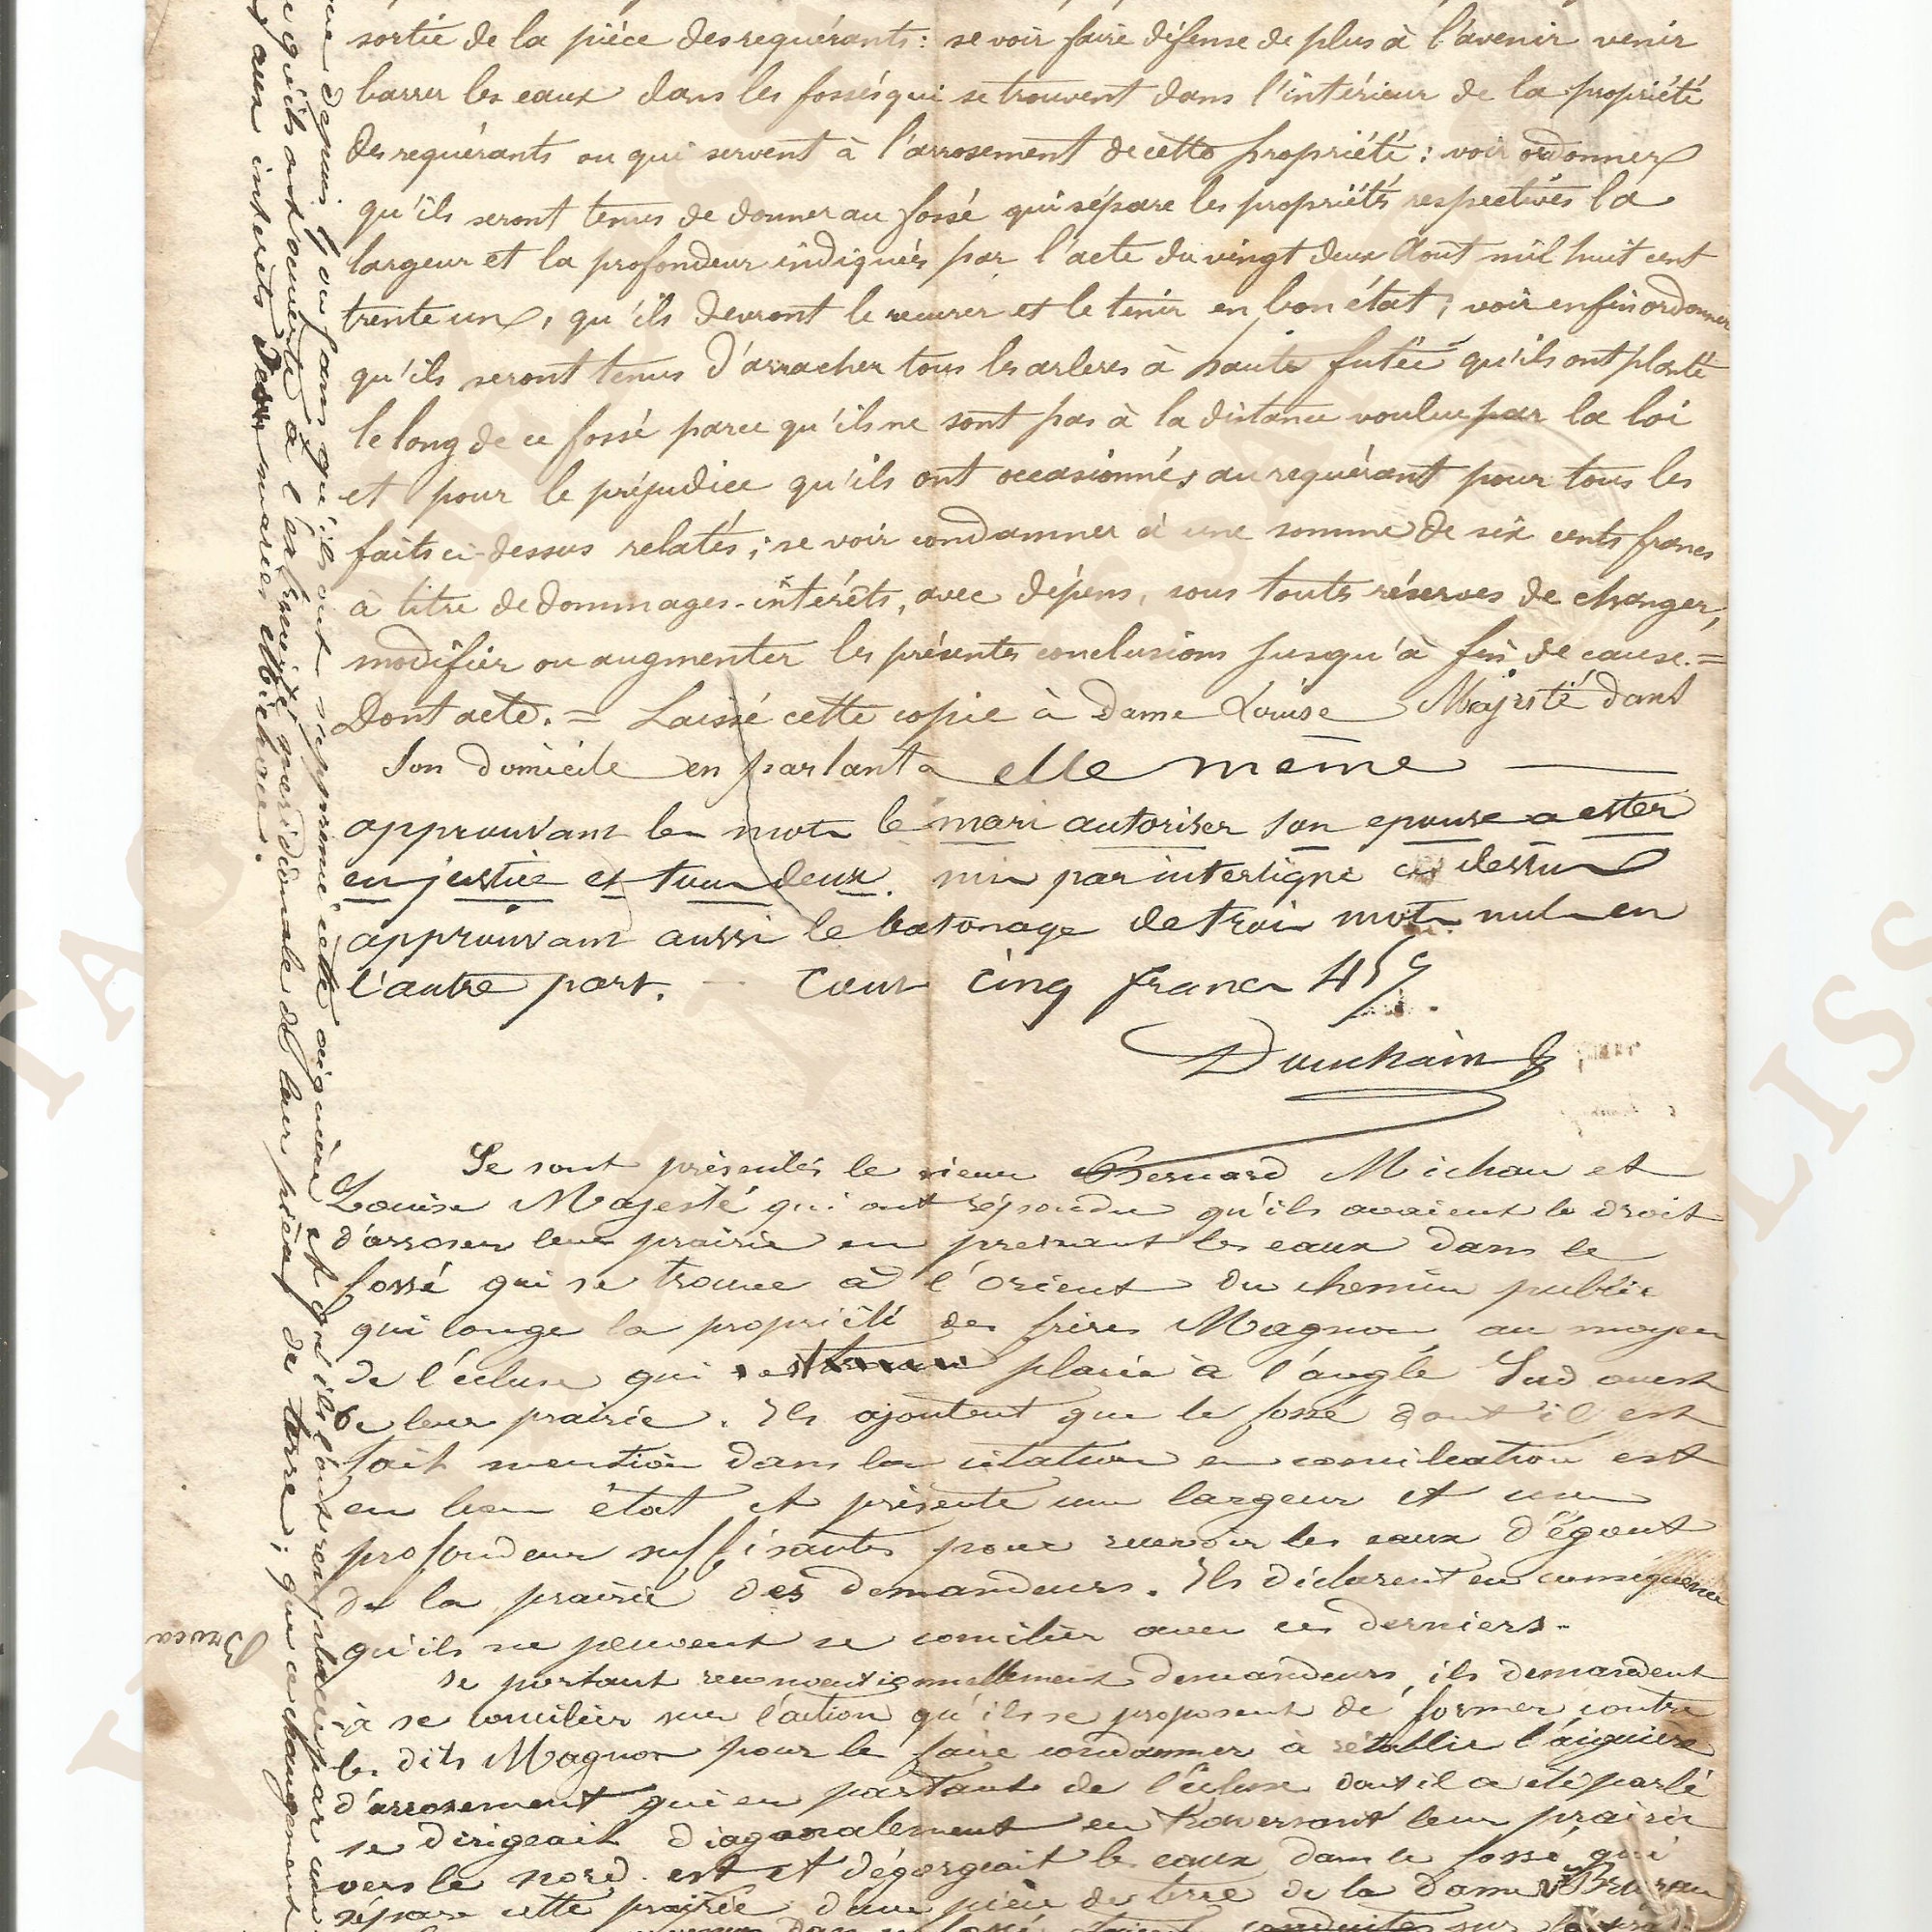 sortie de la pièce des requérants : se voir faire défense de plus à l'avenir venir
barrer les eaux dans les fossés qui se trouvent dans l'intérieur de la propriété
des requérants ou qui servent à l'arrosement de cette propriété : voir ordonner
qu'ils seront tenus de donner au fossé qui sépare les propriétés respectives la
largeur et la profondeur indiquées par l'acte du vingt deux Aout mil huit cent
trente un, qu'ils devront le recurer et le tenir en bon état ; voir enfin ordonner
qu'ils seront tenus d'arracher tous les arbres à haute futée qu'ils ont planté
le long de ce fossé parce qu'ils ne sont pas à la distance voulue par la loi
et pour le préjudice qu'ils ont occasionnés au requérant pour tous les
faits ci-dessus relatés ; se voir condamner à une somme de six cents francs
à titre de dommages-intérêts, avec dépens, sous toutes réserves de changer,
modifier ou augmenter les présentes conclusions jusqu'à fin de cause. =
Dont acte. = Laissé cette copie à Dame Louise Majesté dans
son domicile en parlant a elle même
approuvant les mots le mari autoriser son epouse a ester
en justice et tous deux. mis par interligne ci dessus
approuvant aussi le batonage de trois mots nuls en
l'autre part. — Cout cinq francs 45 c
Duchain
Se sont présentés le sieur Bernard Michau et
Louise Majesté qui ont répondu qu'ils avaient le droit
d'arroser leur prairie en prenant les eaux dans le
fossé qui se trouve à l'orient du chemin public
qui longe la propriété des frères Magnon au moyen
de l'écluse qui est placée à l'angle Sud ouest
de leur prairie. Ils ajoutent que le fossé dont il est
fait mention dans la citation en conciliation est
en bon état et présente une largeur et une
profondeur suffisantes pour recevoir les eaux d'égout
de la prairie des demandeurs. Ils déclarent en conséquence
qu'ils ne peuvent se concilier avec ces derniers.
Se portant reconventionnellement demandeurs, ils demandent
à se concilier sur l'action qu'ils se proposent de former contre
les dits Magnon pour les faire condamner à rétablir l'aiguière
d'arrosement qui en partant de l'écluse dont il a été parlé
se dirigeait diagonalement en traversant leur prairie
vers le nord-est et dégorgeait les eaux dans le fossé qui
sépare cette prairie d'une pièce de terre de la dame
que depuis ans qu'ils ont supprimé cette aiguière et qu'ils l'ont remplacée par une
qu'ils ont ouverte à l'extrémité méridionale de leur pièce de terre ; que ce changement
aux intérets des mariés Michau.